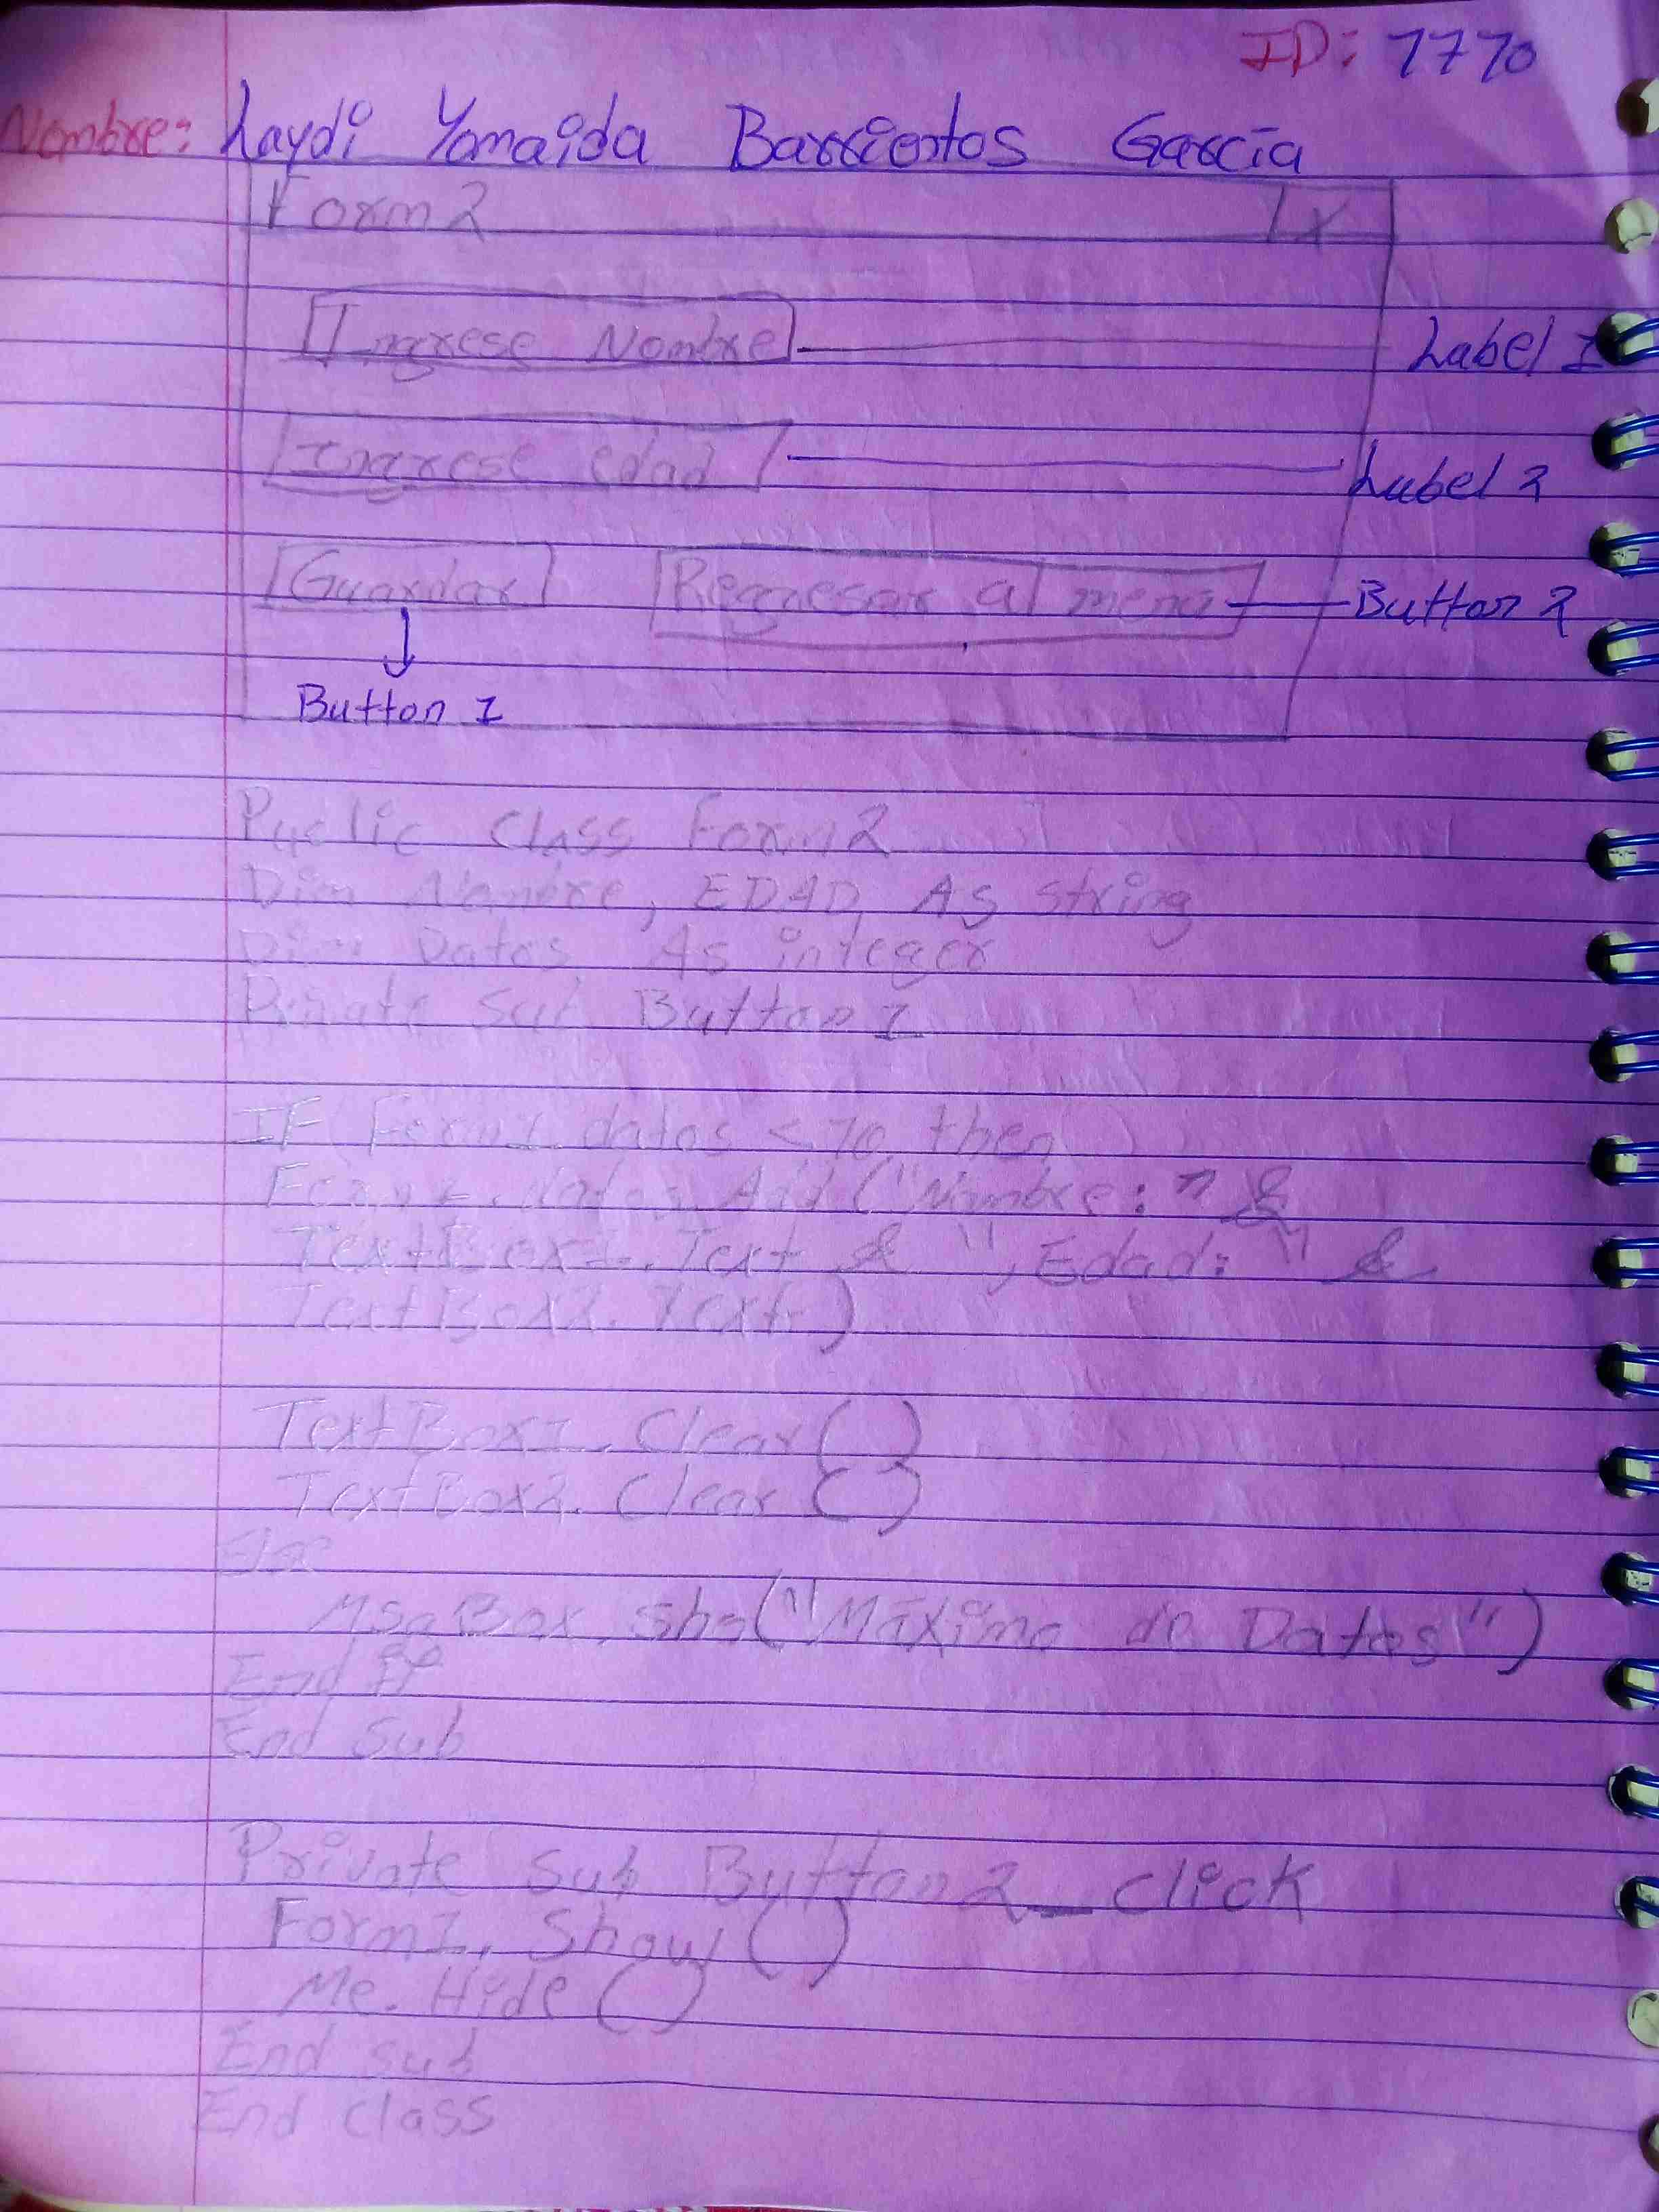 ID: 7770
Nombre: Laydi Yomaida Barrientos García
Form 2 X
Ingrese Nombre Label 1
Ingrese edad Label 2
Guardar Regresar al menú Button 2
Button 1
Public Class Form 2
Dim Nombre, EDAD As string
Dim Datos As integer
Private Sub Button 1
IF Form1.datos < 70 then
Form1.datos.Add ("Nombre: " &
TextBox1.Text & ", Edad: " &
TextBox2.Text)
TextBox1.Clear ( )
TextBox2.Clear ( )
Else
MsgBox.sho("Máximo de Datos")
End if
End Sub
Private Sub Button 2_click
Form1.Show ( )
Me.Hide ( )
End sub
End class